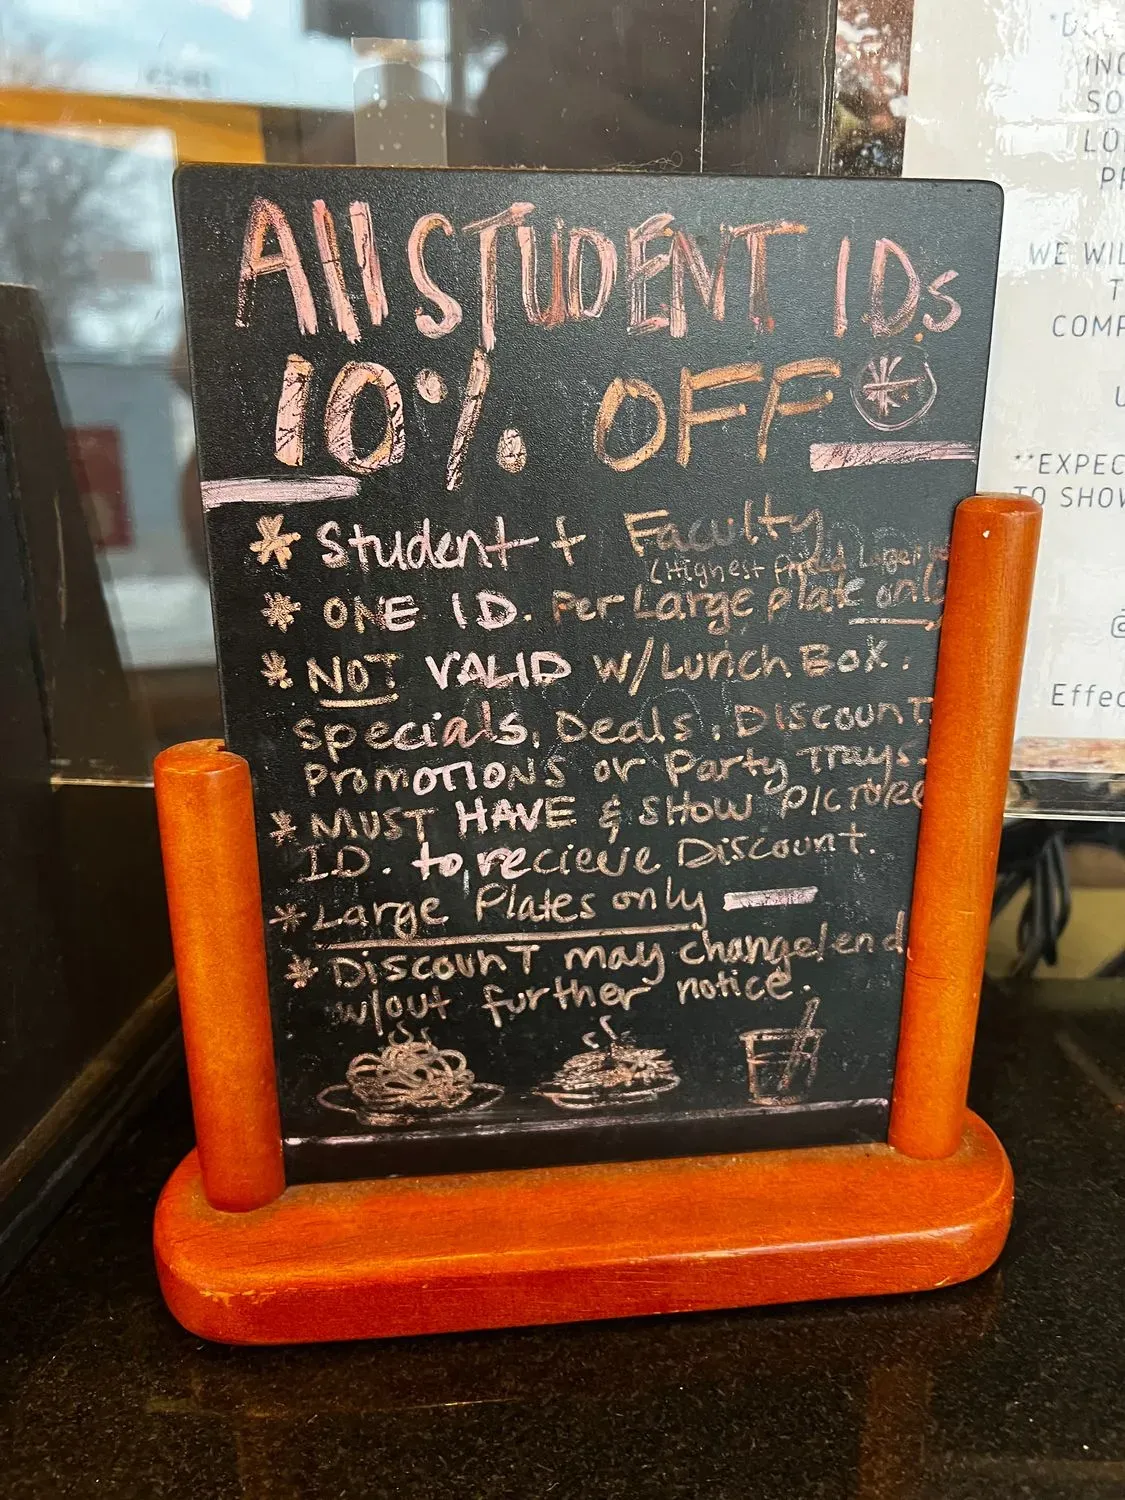 All STUDENT IDs
10% OFF *
* Student + Faculty
(Highest Priced Large
* ONE ID. Per Large plate only
* NOT VALID w/Lunch Box.
Specials, Deals, Discount
Promotions or Party Trays.
* MUST HAVE & SHOW PICTURE
I.D. to recieve Discount.
* Large Plates only
* Discount may change/end
w/out further notice.
INC
SO
PR
WE WIL
T
COMP
U
**EXPEC
TO SHOW
@
Effec